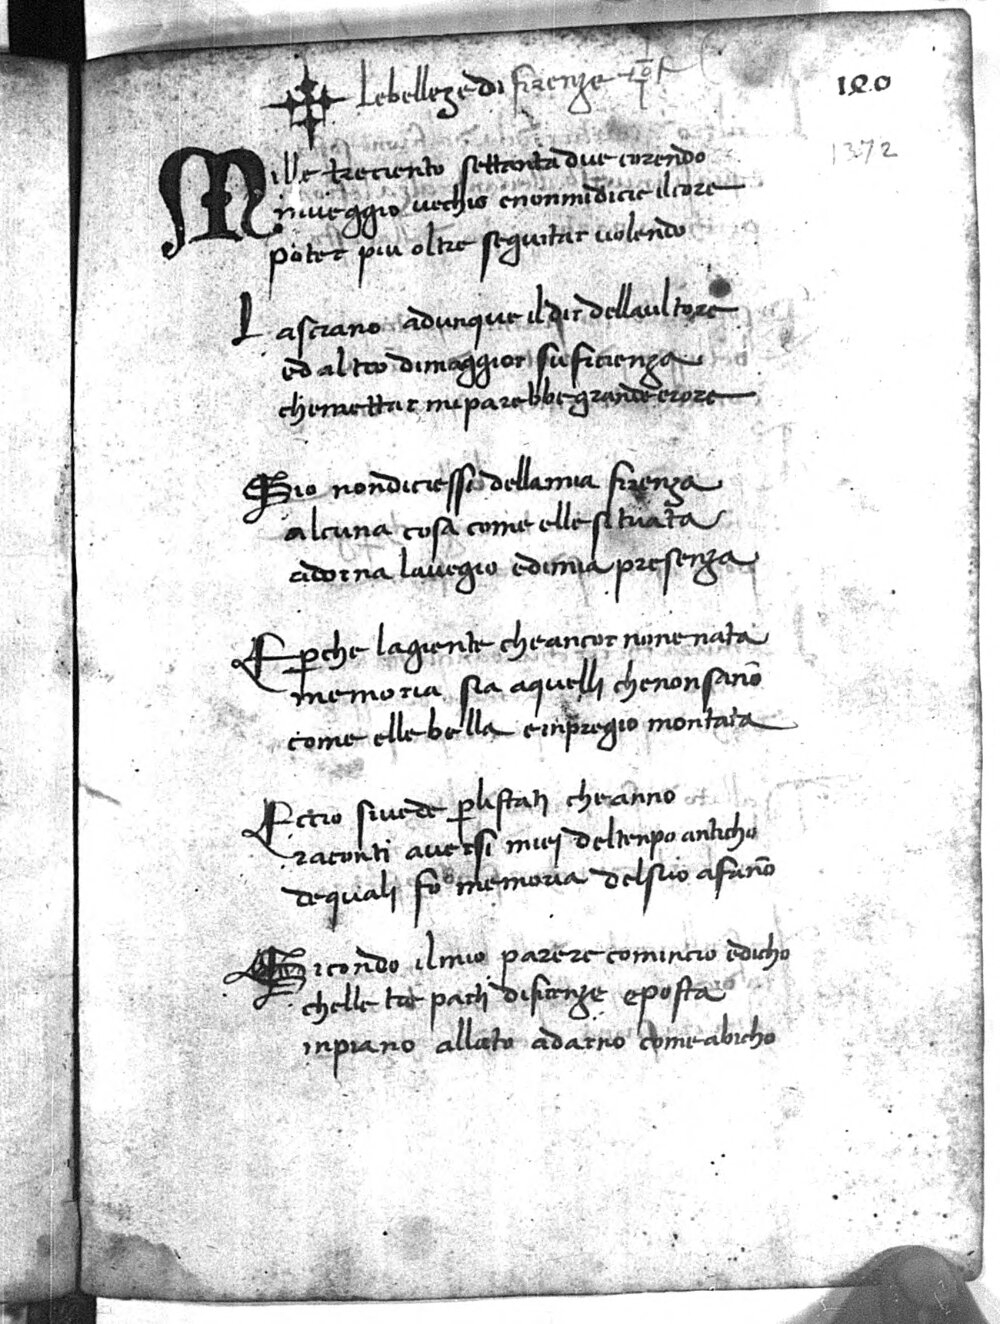 Lebelleze di firenze
120
1372
Mille treciento settanta due corendo
miveggio vechio enonmidicie ilcore
poter piu oltre seguitar volendo
Lasciano adunque il dir dellaultore
ed altro dimaggior sufficienza
chemettar miparebbe grande erore
Sio nondiciessi dellamia firenza
alcuna cosa come elle situata
adorna lavegio edimia presenza
Eperche lagiente cheancor none nata
memoria sia aquelli chenonsano
come elle bella einpregio montata
Eccio sivede perlistatj cheanno
raconti aversi miej deltenpo anticho
dequali fo memoria delsuo afano
Sicondo ilmio parere comincio edicho
chelle tre parti difirenze eposta
inpiano allato adarno come abicho